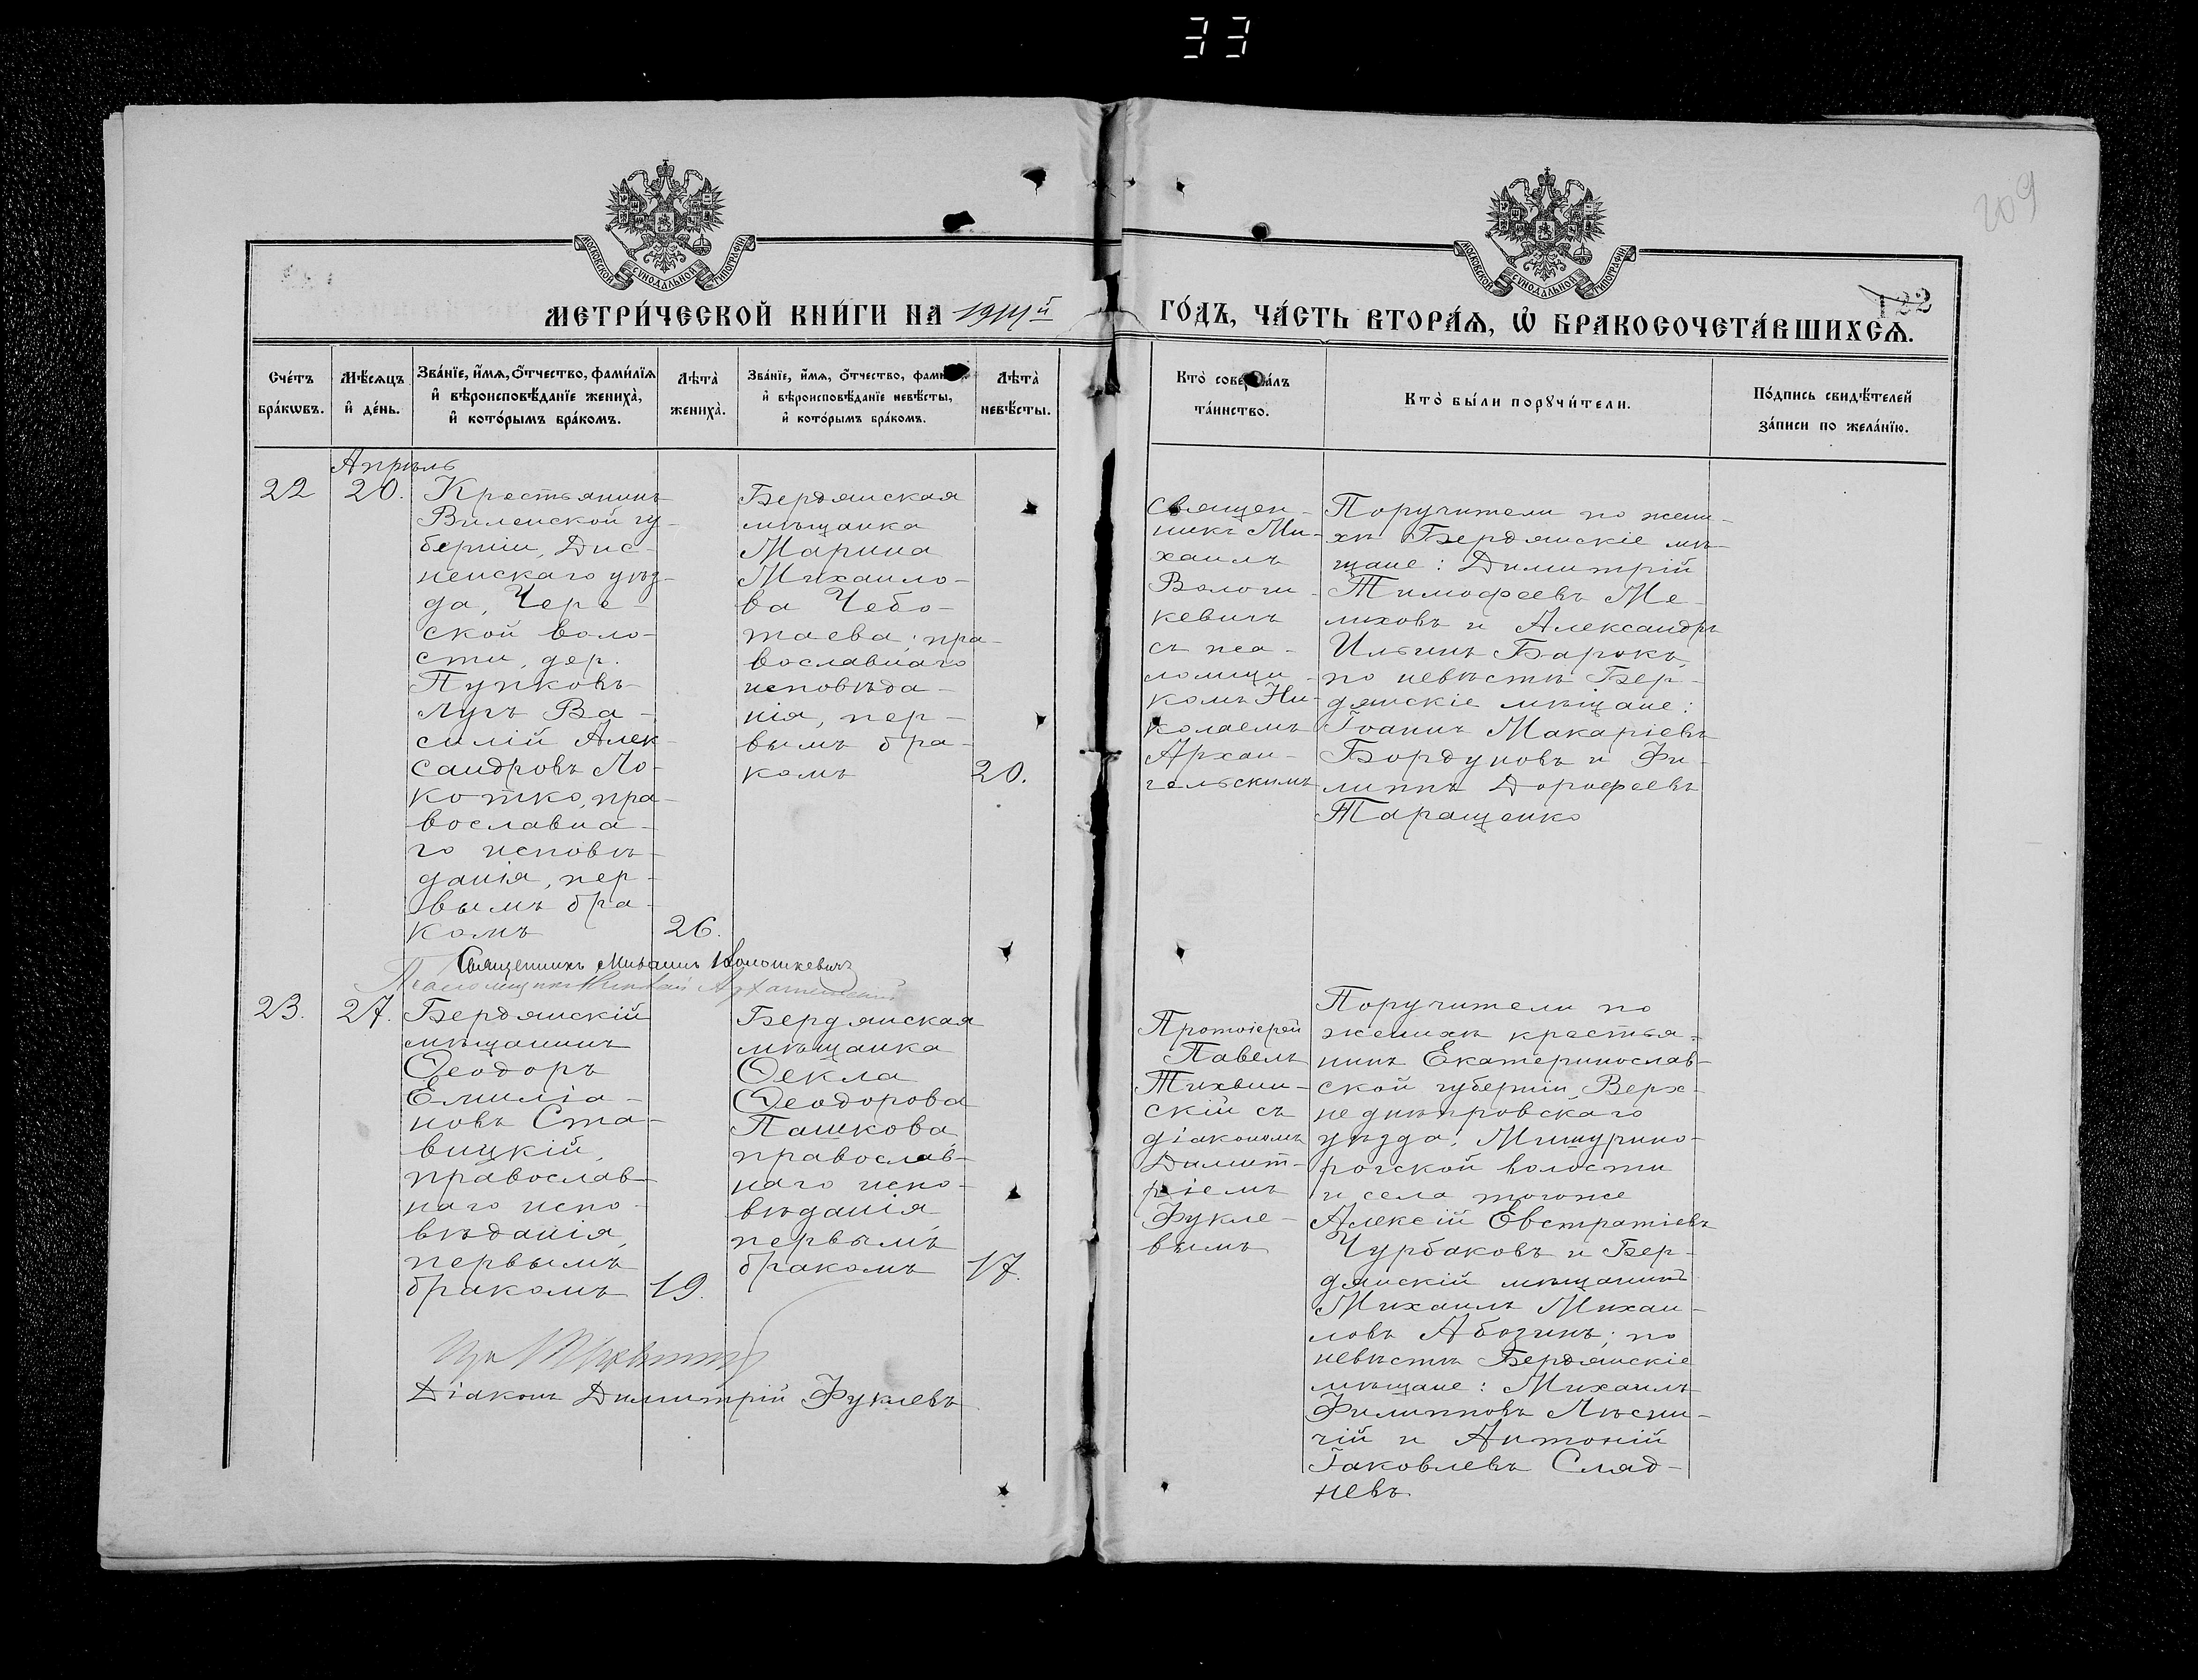 33
209
МОСКОВСКОЙ СУНОДАЛЬНОЙ ТИПОГРАФІИ
МОСКОВСКОЙ СУНОДАЛЬНОЙ ТИПОГРАФІИ
МЕТРИ́ЧЕСКОЙ КНИ́ГИ НА 1914й
ГО́ДЪ, ЧА́СТЬ ВТОРА́Ѧ, Ѡ҆ БРАКОСОЧЕТА́ВШИХСѦ.
122
Сче́тъ бра́кѡвъ.
Мѣ́сѧцъ и҆ де́нь.
Зва́нїе, и҆́мѧ, ѻ҆́тчество, фами́лїѧ и҆ вѣроисповѣ́данїе жениха̀, и҆ кото́рымъ бра́комъ.
Лѣ́та̀ жениха̀.
Зва́нїе, и҆́мѧ, ѻ҆́тчество, фами́лїѧ и҆ вѣроисповѣ́данїе невѣ́сты, и҆ кото́рымъ бра́комъ.
Лѣ́та̀ невѣ́сты.
Кто̀ соверша́лъ та́инство.
Кто̀ бы́ли порꙋчи́тели.
По́дпись свидѣ́телей за́писи по жела́нїю.
Апрѣль
22
20.
Крестьянинъ
Виленской гу-
берніи, Дис-
ненскаго уѣз-
да, Чере-
ской воло-
сти, дер.
Пупковъ-
Лугъ Ва-
силій Алек-
сандровъ Ло-
котко, пра-
вославна-
го исповѣ-
данія, пер-
вымъ бра-
комъ
26.
Бердянская
мѣщанка
Марина
Михаило-
ва Чебо-
таева, пра-
вославнаго
исповѣда-
нія, пер-
вымъ бра-
комъ
20.
Священ-
никъ Ми-
хаилъ
Волоти-
кевичъ
съ пса-
ломщи-
комъ Ни-
колаемъ
Архан-
гельскимъ
Поручители по жени-
хѣ Бердянскіе мѣ-
щане: Димитрій
Тимофеевъ Ме-
лиховъ и Александръ
Ильинъ Барокъ,
по невѣстѣ Бер-
дянскіе мѣщане:
Іоаннъ Макаріевъ
Бордуновъ и Фи-
липпъ Дорофеевъ
Таращенко
Священникъ Михаилъ Волотикевичъ
Псаломщикъ Николай Архангельскій
23.
27.
Бердянскій
мѣщанинъ
Ѳеодоръ
Емиліа-
новъ Ста-
вицкій,
православ-
наго испо-
вѣданія,
первымъ
бракомъ
19.
Бердянская
мѣщанка
Ѳекла
Ѳеодорова
Пашкова,
православ-
наго испо-
вѣданія,
первымъ
бракомъ
17.
Протоіерей
Павелъ
Тихвин-
скій съ
діакономъ
Димит-
ріемъ
Фукле-
вымъ
Поручители по
женихѣ крестья-
нинъ Екатеринослав-
ской губерніи, Верх-
неднѣпровскаго
уѣзда, Мишурино-
рогской волости
и села тогоже
Алексій Евстратіевъ
Чурбаковъ и Бер-
дянскій мѣщанинъ
Михаилъ Михаи-
ловъ Абозинъ; по
невѣстѣ Бердянскіе
мѣщане: Михаилъ
Филипповъ Лѣсни-
чій и Антоній
Іаковлевъ Сляд-
невъ.
Діаконъ Димитрій Фуклевъ